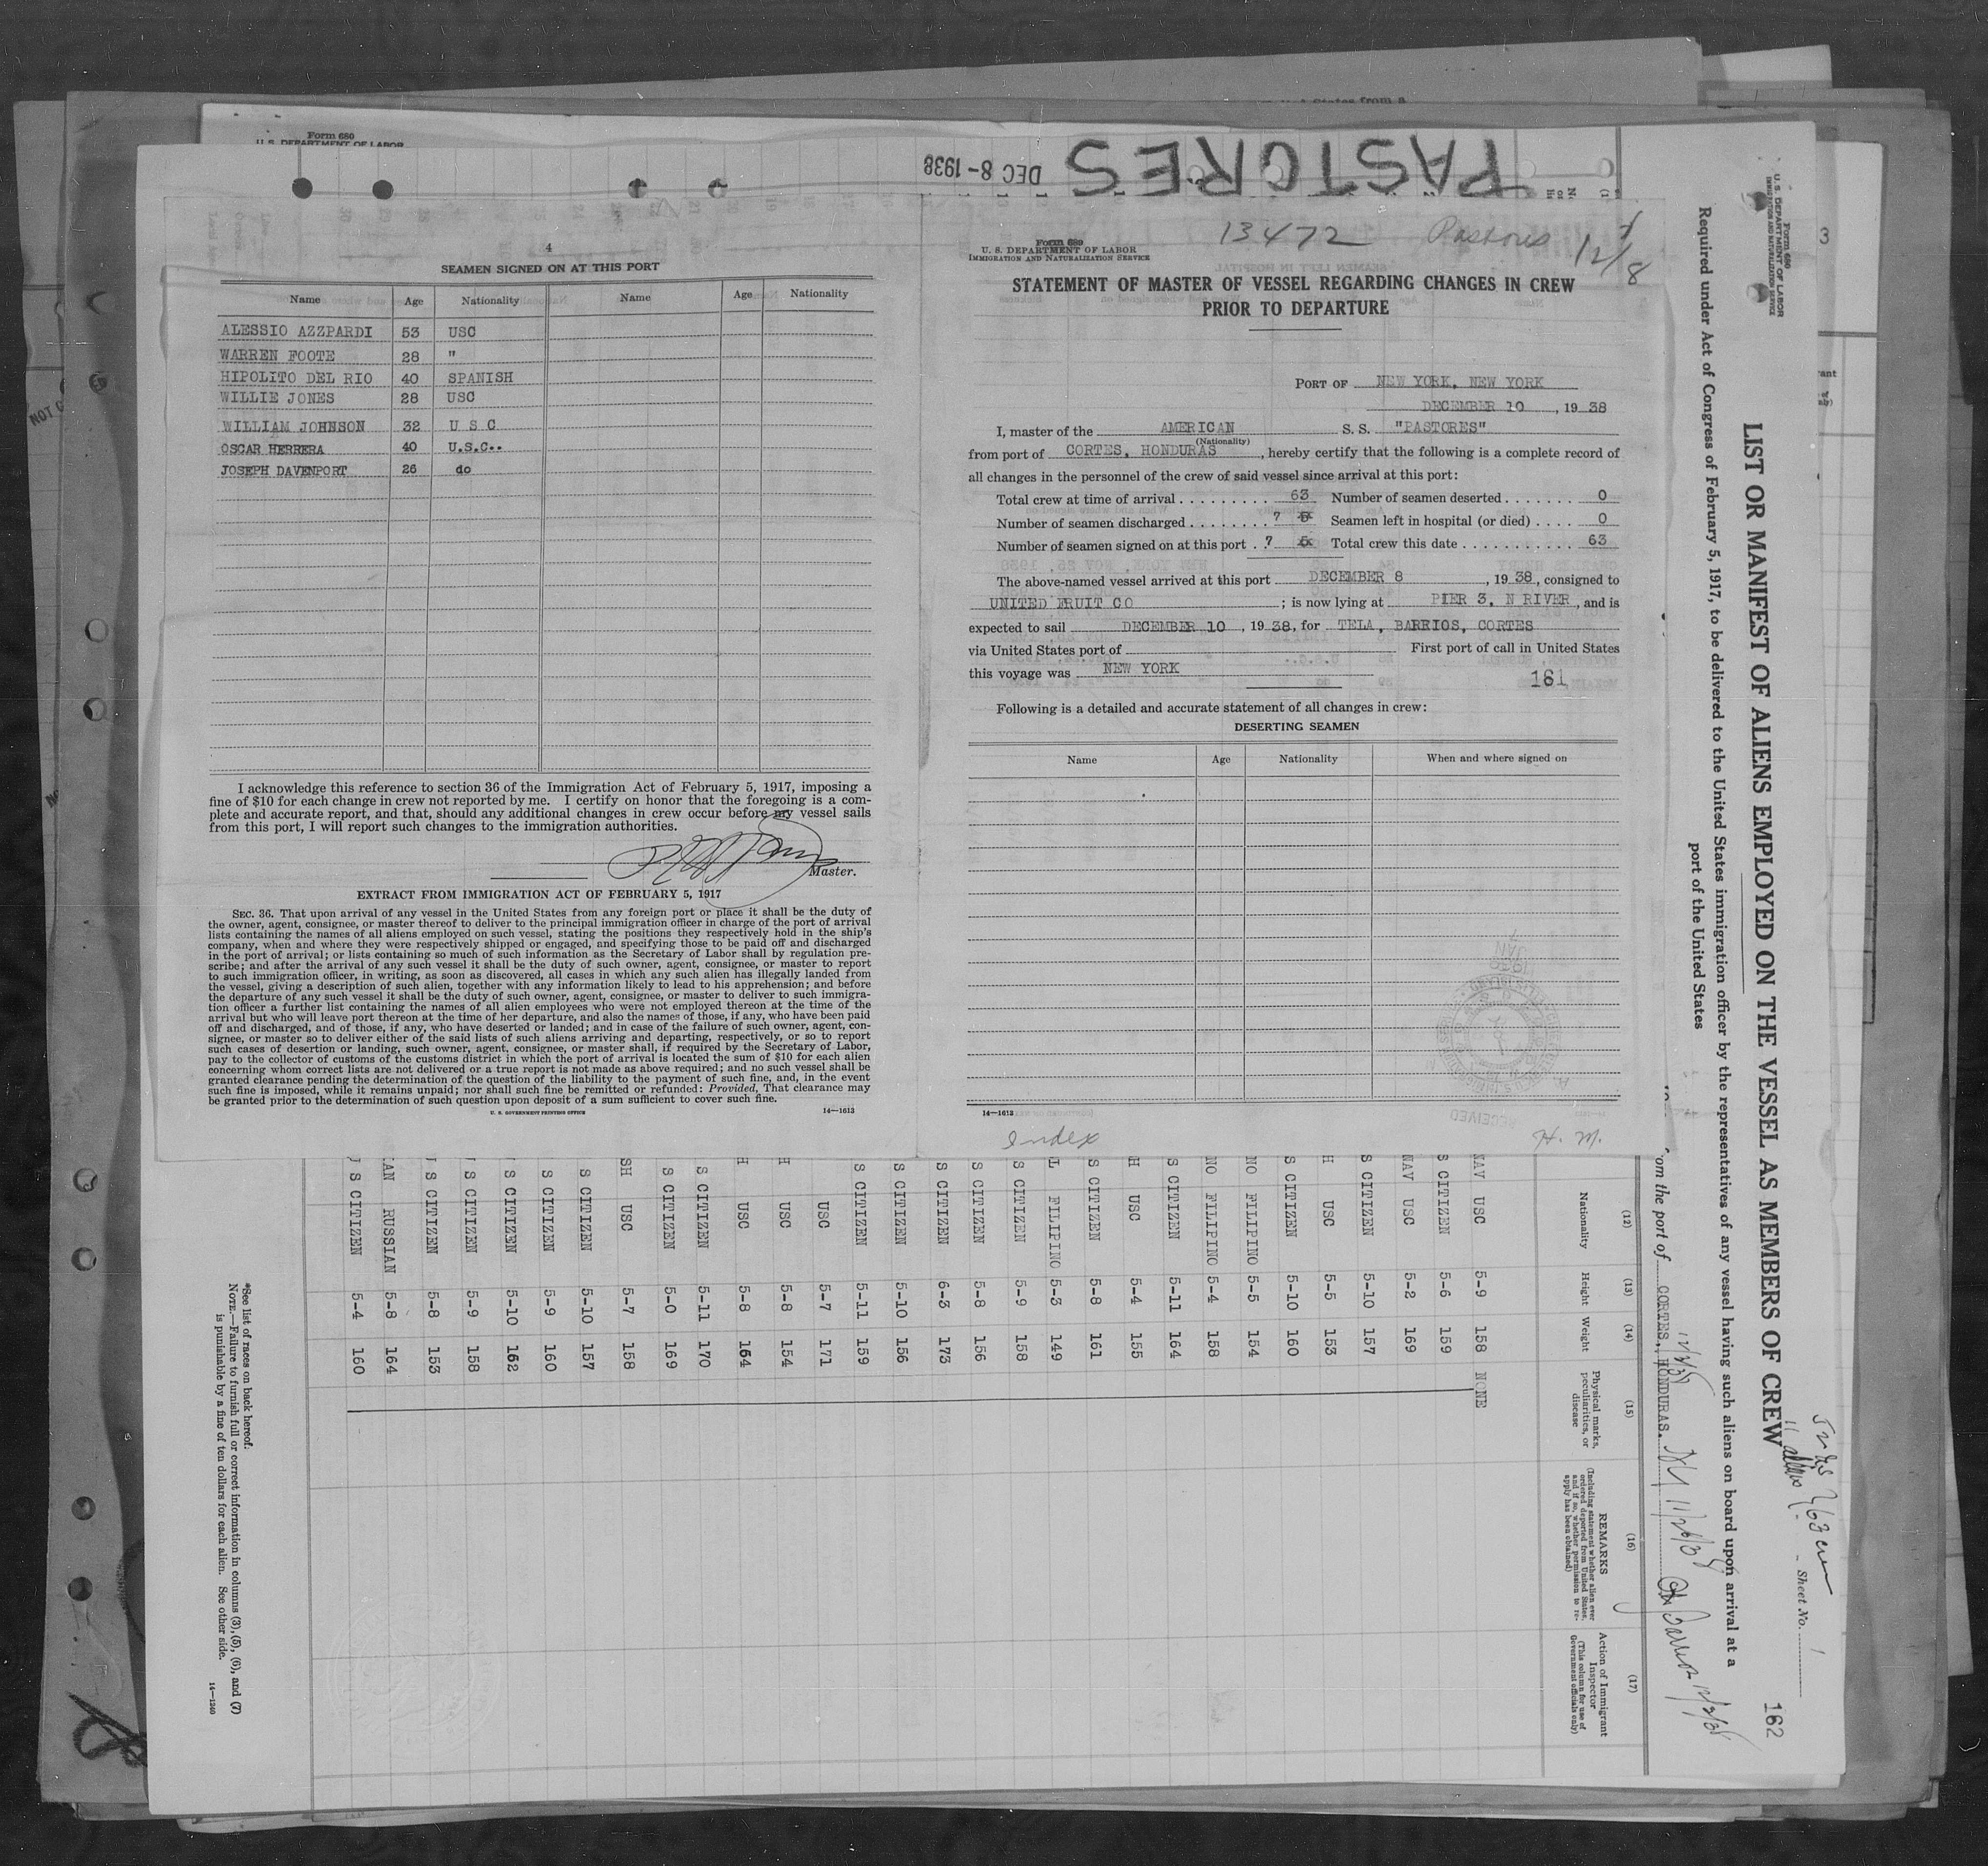 Form 680
U. S. DEPARTMENT OF LABOR
DEC 8-1938
PASTORES
4
SEAMEN SIGNED ON AT THIS PORT
Name Age Nationality Name Age Nationality
ALESSIO AZZPARDI 53 USC
WARREN FOOTE 28 "
HIPOLITO DEL RIO 40 SPANISH
WILLIE JONES 28 USC
WILLIAM JOHNSON 32 U S C
OSCAR HERRERA 40 U.S.C..
JOSEPH DAVENPORT 26 do
I acknowledge this reference to section 36 of the Immigration Act of February 5, 1917, imposing a
fine of $10 for each change in crew not reported by me. I certify on honor that the foregoing is a com-
plete and accurate report, and that, should any additional changes in crew occur before my vessel sails
from this port, I will report such changes to the immigration authorities.
Master.
EXTRACT FROM IMMIGRATION ACT OF FEBRUARY 5, 1917
SEC. 36. That upon arrival of any vessel in the United States from any foreign port or place it shall be the duty of
the owner, agent, consignee, or master thereof to deliver to the principal immigration officer in charge of the port of arrival
lists containing the names of all aliens employed on such vessel, stating the positions they respectively hold in the ship's
company, when and where they were respectively shipped or engaged, and specifying those to be paid off and discharged
in the port of arrival; or lists containing so much of such information as the Secretary of Labor shall by regulation pre-
scribe; and after the arrival of any such vessel it shall be the duty of such owner, agent, consignee, or master to report
to such immigration officer, in writing, as soon as discovered, all cases in which any such alien has illegally landed from
the vessel, giving a description of such alien, together with any information likely to lead to his apprehension; and before
the departure of any such vessel it shall be the duty of such owner, agent, consignee, or master to deliver to such immigra-
tion officer a further list containing the names of all alien employees who were not employed thereon at the time of the
arrival but who will leave port thereon at the time of her departure, and also the names of those, if any, who have been paid
off and discharged, and of those, if any, who have deserted or landed; and in case of the failure of such owner, agent, con-
signee, or master so to deliver either of the said lists of such aliens arriving and departing, respectively, or so to report
such cases of desertion or landing, such owner, agent, consignee, or master shall, if required by the Secretary of Labor,
pay to the collector of customs of the customs district in which the port of arrival is located the sum of $10 for each alien
concerning whom correct lists are not delivered or a true report is not made as above required; and no such vessel shall be
granted clearance pending the determination of the question of the liability to the payment of such fine, and, in the event
such fine is imposed, while it remains unpaid; nor shall such fine be remitted or refunded: Provided, That clearance may
be granted prior to the determination of such question upon deposit of a sum sufficient to cover such fine.
U. S. GOVERNMENT PRINTING OFFICE 14—1613
Form 689
U. S. DEPARTMENT OF LABOR
IMMIGRATION AND NATURALIZATION SERVICE
13472 Pastores 12/8
STATEMENT OF MASTER OF VESSEL REGARDING CHANGES IN CREW
PRIOR TO DEPARTURE
PORT OF NEW YORK, NEW YORK
DECEMBER 10, 1938
I, master of the AMERICAN S. S. "PASTORES"
(Nationality)
from port of CORTES, HONDURAS, hereby certify that the following is a complete record of
all changes in the personnel of the crew of said vessel since arrival at this port:
Total crew at time of arrival 63 Number of seamen deserted 0
Number of seamen discharged 7 5 Seamen left in hospital (or died) 0
Number of seamen signed on at this port 7 5 Total crew this date 63
The above-named vessel arrived at this port DECEMBER 8, 1938, consigned to
UNITED FRUIT CO; is now lying at PIER 3, N RIVER, and is
expected to sail DECEMBER 10, 1938, for TELA, BARRIOS, CORTES
via United States port of First port of call in United States
this voyage was NEW YORK
181
Following is a detailed and accurate statement of all changes in crew:
DESERTING SEAMEN
Name Age Nationality When and where signed on
14—1613
Index H. M.
Form 680
U. S. DEPARTMENT OF LABOR
IMMIGRATION AND NATURALIZATION SERVICE
LIST OR MANIFEST OF ALIENS EMPLOYED ON THE VESSEL AS MEMBERS OF CREW
Required under Act of Congress of February 5, 1917, to be delivered to the United States immigration officer by the representatives of any vessel having such aliens on board upon arrival at a
port of the United States
Sheet No. 1
162
63 crew
11 aliens
om the port of CORTES, HONDURAS.
(12) (13) (14) (15) (16) (17)
Nationality Height Weight Physical marks, peculiarities, or disease
REMARKS
(Including statement whether alien ever ordered deported from United States, and if so, whether permission to re-apply has been obtained)
Action of Immigrant Inspector
(This column for use of Government officials only)
NAV USC 5-9 158 NONE
S CITIZEN 5-6 159
NAV USC 5-2 169
S CITIZEN 5-10 157
H USC 5-5 153
S CITIZEN 5-10 160
NO FILIPINO 5-5 154
NO FILIPINO 5-4 158
S CITIZEN 5-11 164
H USC 5-4 155
S CITIZEN 5-8 161
L FILIPINO 5-3 149
S CITIZEN 5-9 158
S CITIZEN 5-8 156
S CITIZEN 6-3 173
S CITIZEN 5-10 156
S CITIZEN 5-11 159
USC 5-7 171
H USC 5-8 154
H USC 5-8 164
S CITIZEN 5-11 170
S CITIZEN 5-0 169
SH USC 5-7 158
S CITIZEN 5-10 157
S CITIZEN 5-9 160
S CITIZEN 5-10 162
S CITIZEN 5-9 158
S CITIZEN 5-8 153
AN RUSSIAN 5-8 164
S CITIZEN 5-4 160
*See list of races on back hereof.
NOTE.—Failure to furnish full or correct information in columns (3), (5), (6), and (7)
is punishable by a fine of ten dollars for each alien. See other side.
14—1240